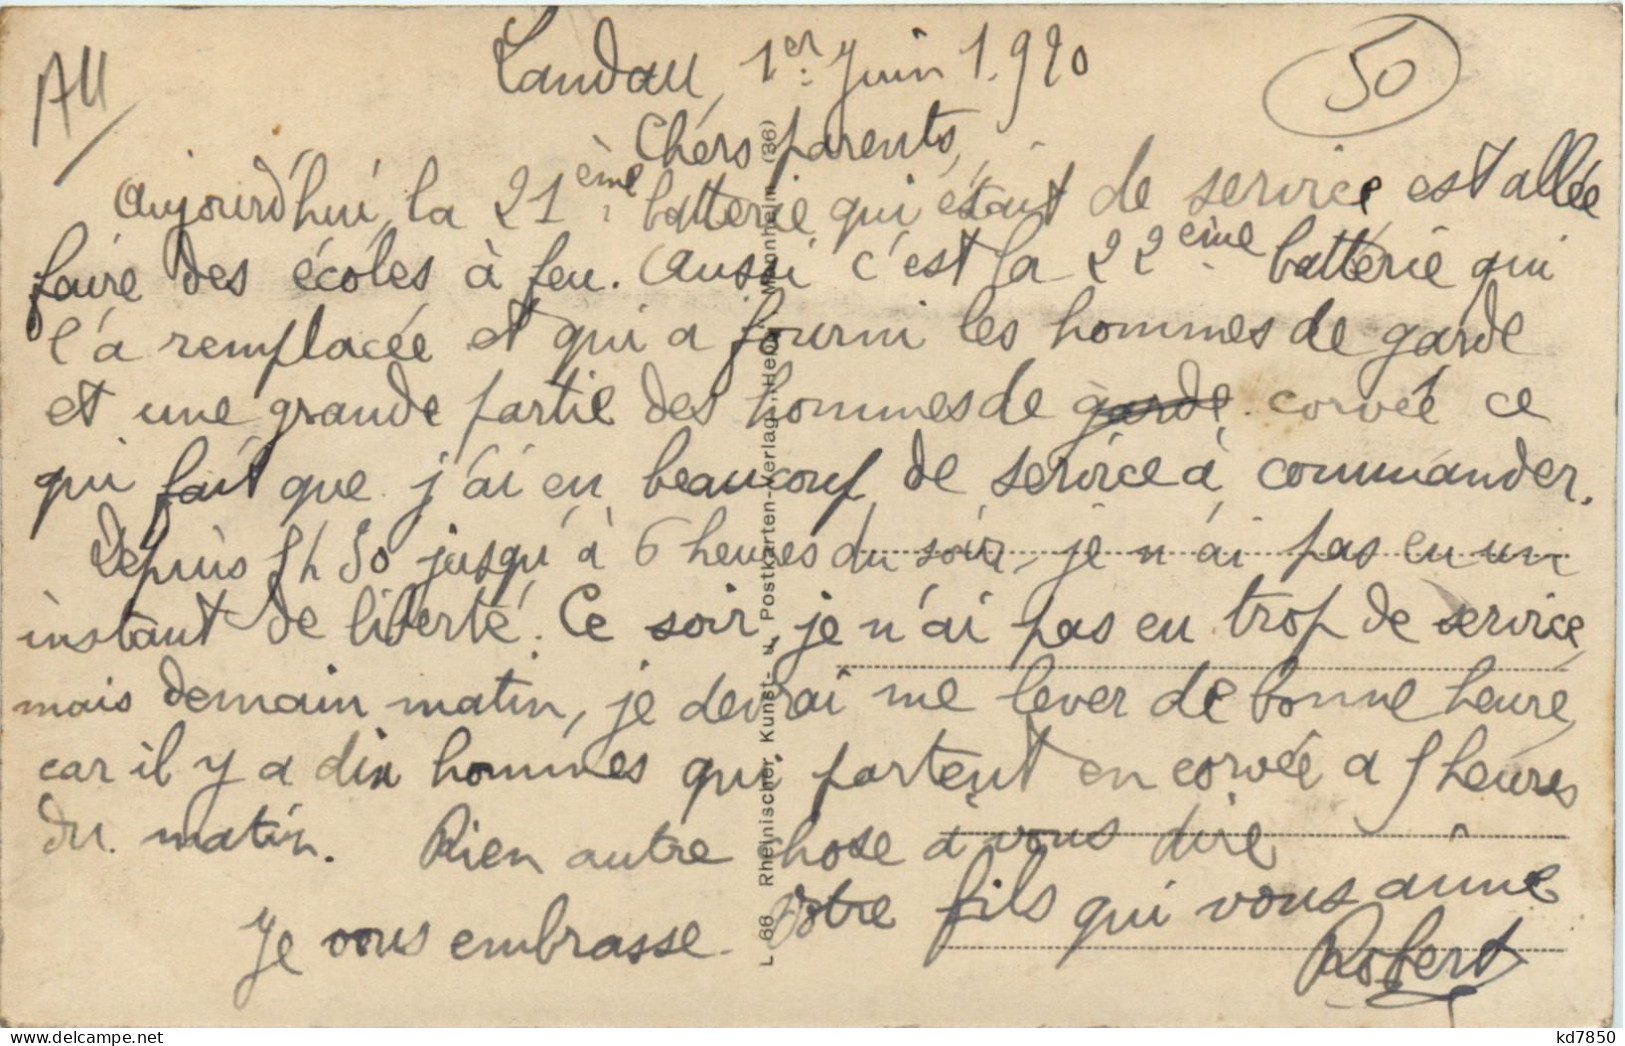 AU
Landau, 1er Juin 1.920
50
Chers parents,
Aujourd'hui, la 21ème batterie qui était de service est allée
faire des écoles à feu. Aussi c'est la 22ème batterie qui
l'a remplacée et qui a fourni les hommes de garde
et une grande partie des hommes de garde corvée ce
qui fait que j'ai eu beaucoup de service à commander.
Depuis 5h 50 jusqu'à 6 heures du soir, je n'ai pas eu un
instant de liberté. Ce soir, je n'ai pas eu trop de service,
mais demain matin, je devrai me lever de bonne heure,
car il y a dix hommes qui partent en corvée a 5 heures
du matin. Rien autre chose à vous dire
Je vous embrasse. Votre fils qui vous aime
Robert
L 66 Rheinischer Kunst- u. Postkarten-Verlag, Mannheim (36)
kd7850